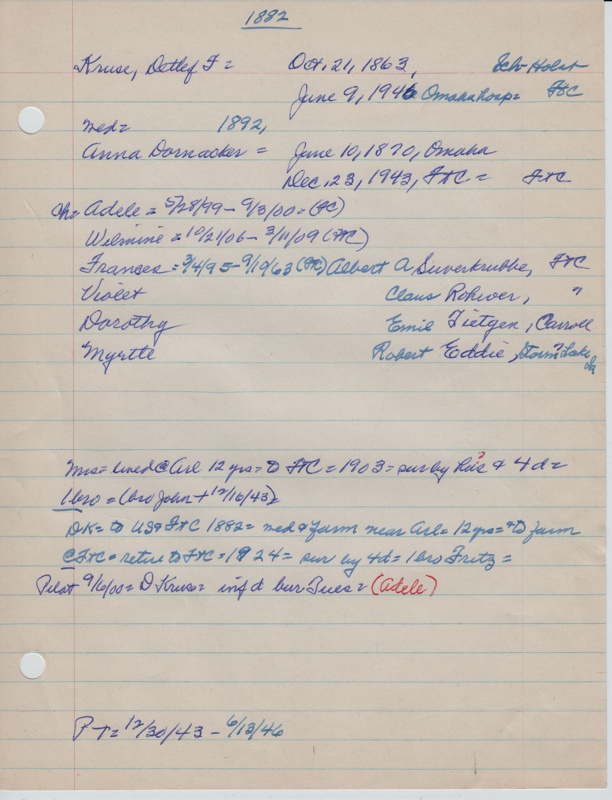 1882
Kruse, Detlef F = Oct. 21, 1863, Sch-Holst
June 9, 1946 Omaha hosp = FtC
med = 1892,
Anna Dornacker = June 10, 1870, Omaha
Dec. 23, 1943, FtC = FtC
Ch = Adele = 5/28/99 - 9/3/00 = (FC)
Wilmine = 10/21/06 - 3/11/09 (FtC)
Frances = 3/4/95 - 9/19/63 (FtC) Albert A Suverkrubbe, FtC
Violet Claus Rohwer, "
Dorothy Emil Tietgen, Carroll
Myrtle Robert Eddie, Storm Lake Ia
?
Mrs = lived @ Arl 12 yrs = to FtC = 1903 = sur by hus & 4 d =
?
1 bro = (bro John + 12/16/43) =
DK = to US & FtC 1882 = med & farm near Arl = 12 yrs = to farm
@ FtC = retire to FtC = 1924 = sur by 4d = 1 bro Fritz =
Pilot 9/6/00 = D Kruse = inf d bur Tues = (Adele)
PT = 12/30/43 - 6/13/46